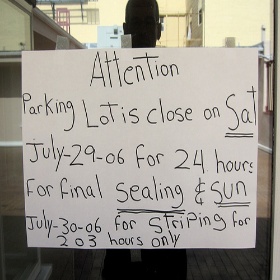 Attention
Parking Lot is close on Sat
July-29-06 for 24 hours
For final Sealing & Sun
July-30-06 for Striping for
2 o 3 hours only